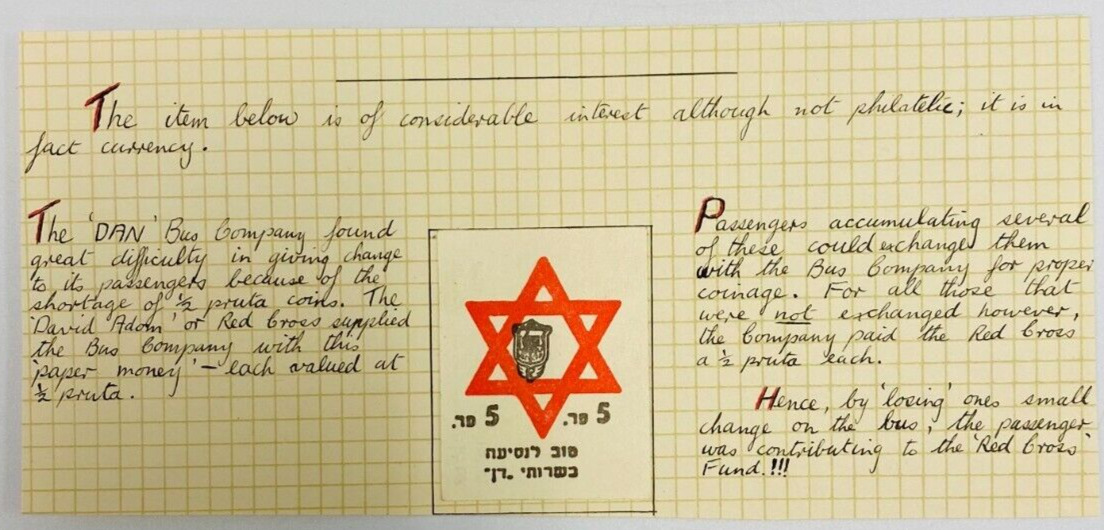 The item below is of considerable interest although not philatelic; it is in
fact currency.
The 'DAN' Bus Company found
great difficulty in giving change
to its passengers because of the
shortage of ½ pruta coins. The
'David Adom' or Red Cross supplied
the Bus Company with this
'paper money' – each valued at
½ pruta.
5 פר. 5 פר.
טוב לנסיעה
בשרותי "דן"
Passengers accumulating several
of these could exchange them
with the Bus Company for proper
coinage. For all those that
were not exchanged however,
the Company paid the Red Cross
a ½ pruta each.
Hence, by 'losing' ones small
change on the bus, the passenger
was contributing to the 'Red Cross'
Fund.!!!